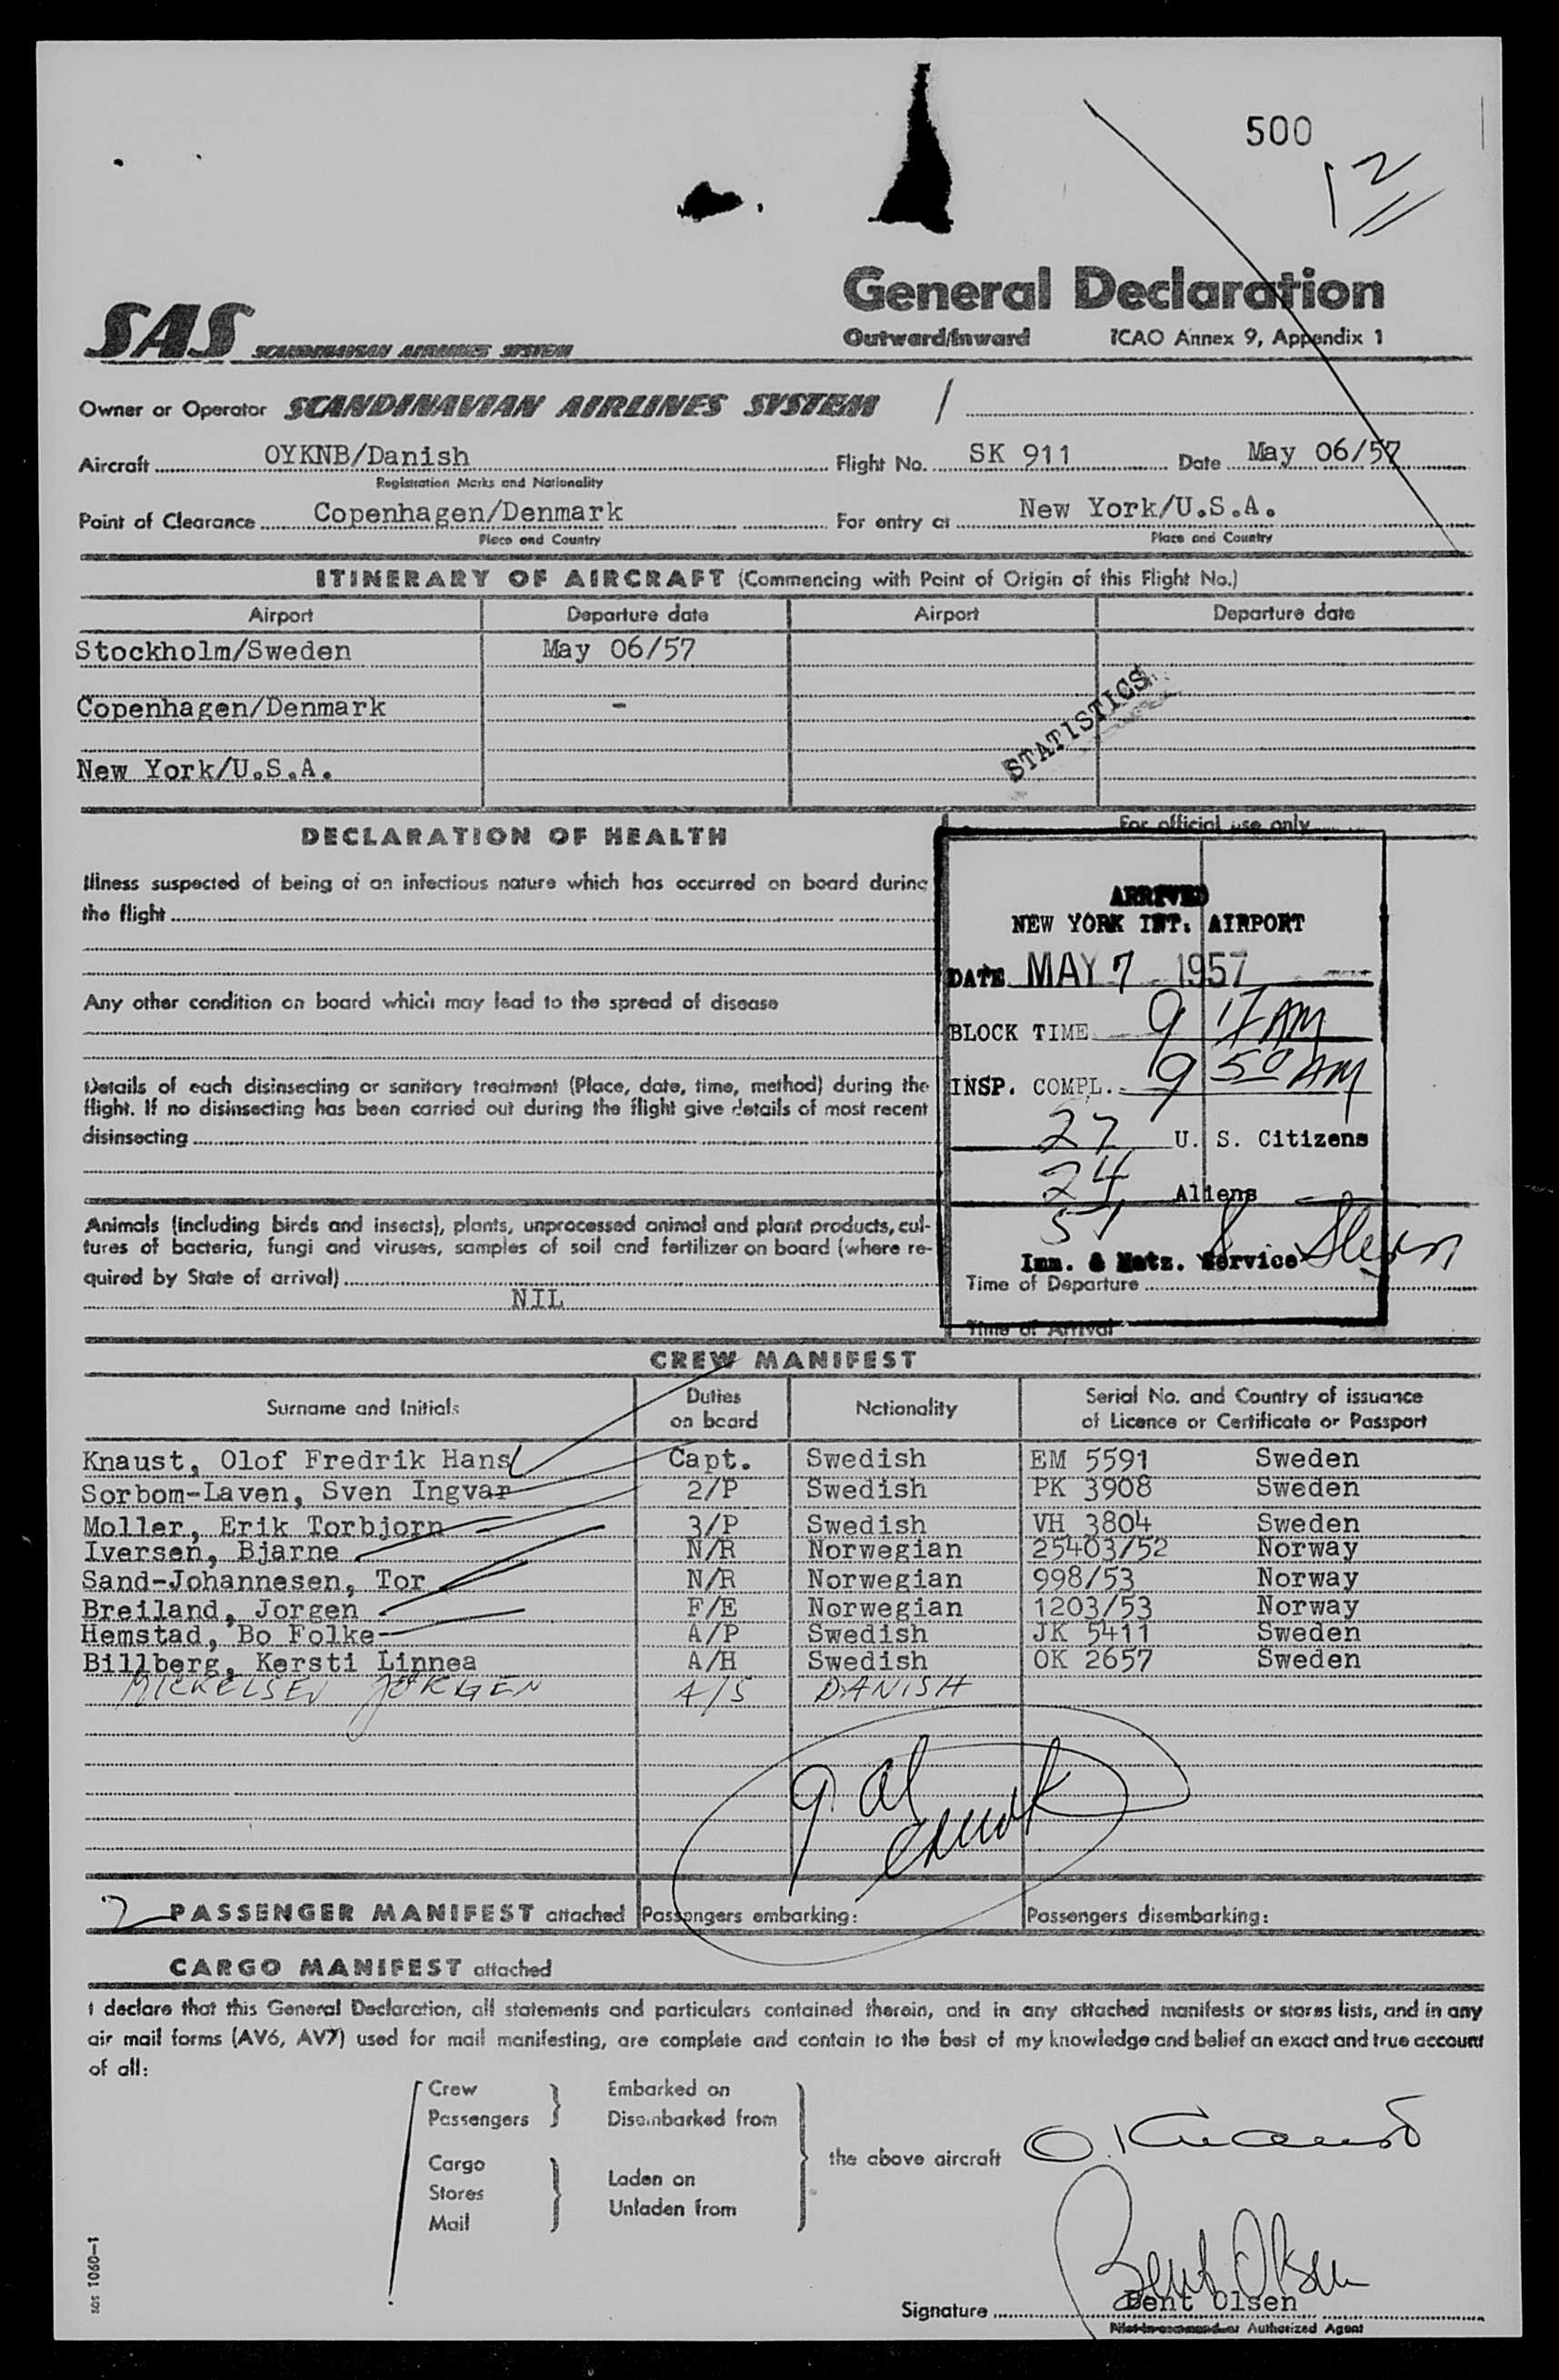 500
12
General Declaration
Outward/Inward ICAO Annex 9, Appendix 1
SAS SCANDINAVIAN AIRLINES SYSTEM
Owner or Operator SCANDINAVIAN AIRLINES SYSTEM /
Aircraft OYKNB/Danish Flight No. SK 911 Date May 06/57
Registration Marks and Nationality
Point of Clearance Copenhagen/Denmark For entry at New York/U.S.A.
Place and Country Place and Country
ITINERARY OF AIRCRAFT (Commencing with Point of Origin of this Flight No.)
Airport Departure date Airport Departure date
Stockholm/Sweden May 06/57
Copenhagen/Denmark -
STATISTICS
New York/U.S.A.
DECLARATION OF HEALTH
Illness suspected of being of an infectious nature which has occurred on board during
the flight
Any other condition on board which may lead to the spread of disease
Details of each disinsecting or sanitary treatment (Place, date, time, method) during the
flight. If no disinsecting has been carried out during the flight give details of most recent
disinsecting
Animals (including birds and insects), plants, unprocessed animal and plant products, cul-
tures of bacteria, fungi and viruses, samples of soil and fertilizer on board (where re-
quired by State of arrival)
NIL
For official use only
ARRIVED
NEW YORK INT. AIRPORT
DATE MAY 7 1957
BLOCK TIME 9 17 AM
INSP. COMPL. 9 50 AM
27 U. S. Citizens
24 Aliens
51
Imm. & Natz. Service
Time of Departure
Time of Arrival
CREW MANIFEST
Surname and Initials Duties on board Nationality Serial No. and Country of issuance of Licence or Certificate or Passport
Knaust, Olof Fredrik Hans Capt. Swedish EM 5591 Sweden
Sorbom-Laven, Sven Ingvar 2/P Swedish PK 3908 Sweden
Moller, Erik Torbjorn 3/P Swedish VH 3804 Sweden
Iversen, Bjarne N/R Norwegian 25403/52 Norway
Sand-Johannesen, Tor N/R Norwegian 998/53 Norway
Breiland, Jorgen F/E Norwegian 1203/53 Norway
Hemstad, Bo Folke A/P Swedish JK 5411 Sweden
Billberg, Kersti Linnea A/H Swedish OK 2657 Sweden
MICKELSEN JØRGEN A/S DANISH
9 al
2 PASSENGER MANIFEST attached Passengers embarking: Passengers disembarking:
CARGO MANIFEST attached
I declare that this General Declaration, all statements and particulars contained therein, and in any attached manifests or stores lists, and in any
air mail forms (AV6, AV7) used for mail manifesting, are complete and contain to the best of my knowledge and belief an exact and true account
of all:
Crew Embarked on
Passengers Disembarked from
the above aircraft O. Knaust
Cargo
Laden on
Stores
Unladen from
Mail
Bent Olsen
Signature Bent Olsen
Pilot-in-command or Authorized Agent
SAS 1060-1